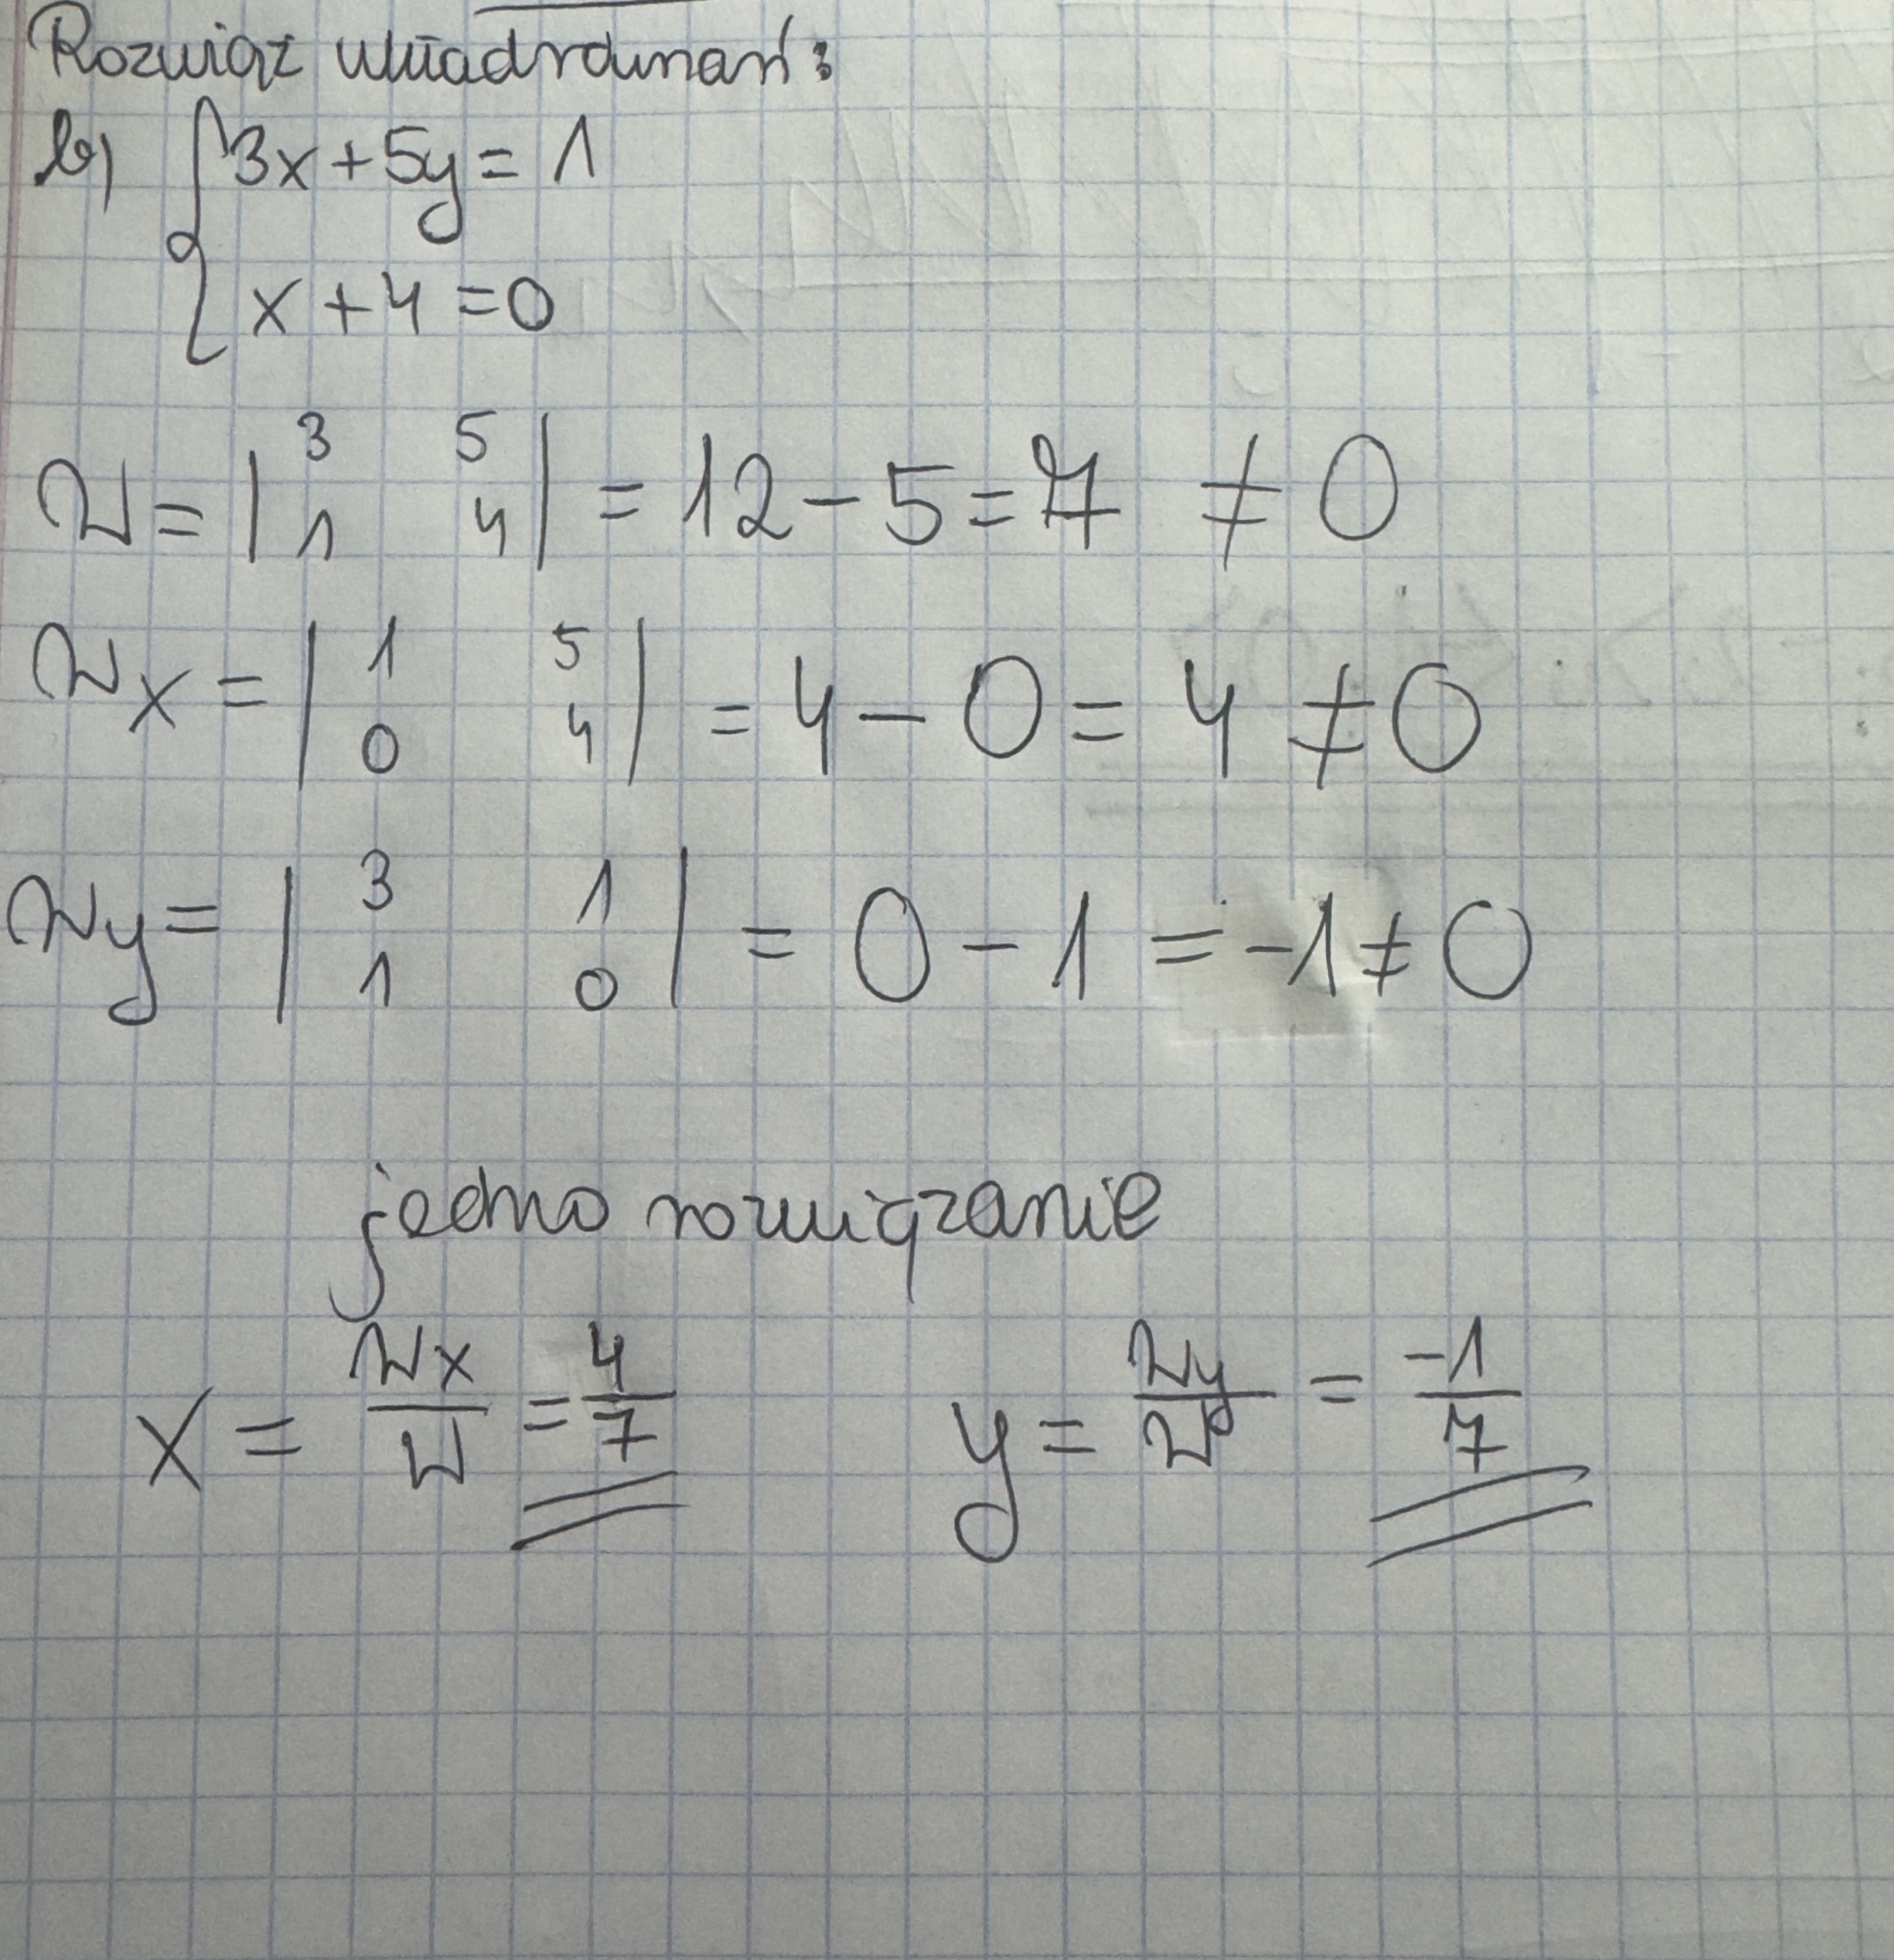 Rozwiąż układ równań:
b) { 3x + 5y = 1
x + 4 = 0
W = | 3 5 |
| 1 4 | = 12 - 5 = 7 ≠ 0
Wx = | 1 5 |
| 0 4 | = 4 - 0 = 4 ≠ 0
Wy = | 3 1 |
| 1 0 | = 0 - 1 = -1 ≠ 0
jedno rozwiązanie
x = Wx/W = 4/7 y = Wy/W = -1/7